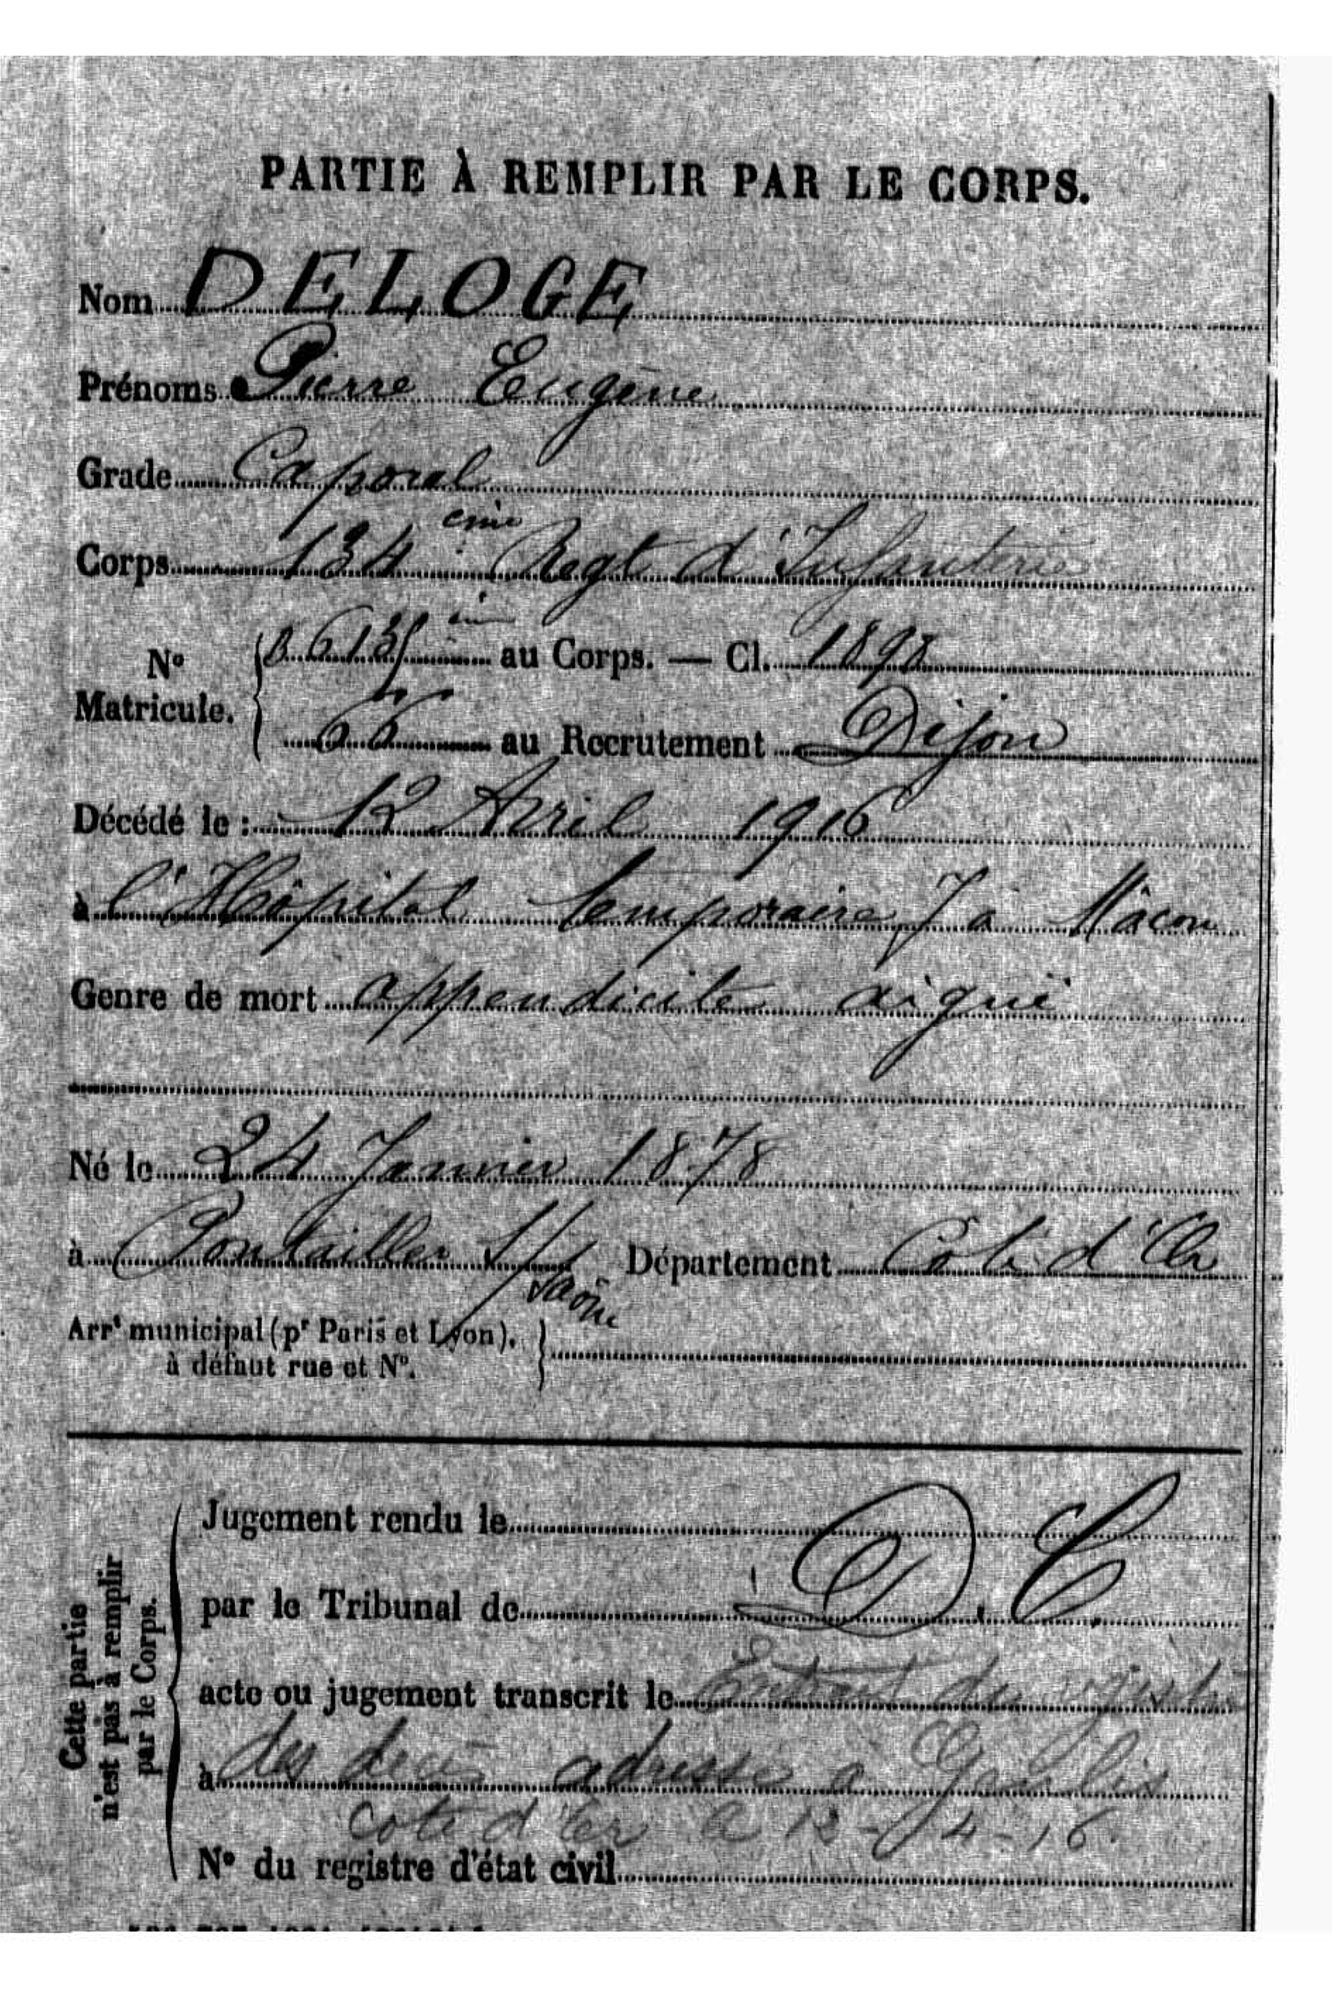 PARTIE À REMPLIR PAR LE CORPS.
Nom DELOGE
Prénoms Pierre Eugène
Grade Caporal
Corps 134 eme Regt d'Infanterie
Nº Matricule. 6135 au Corps. — Cl. 1898
66 au Recrutement Dijon
Décédé le : 12 Avril 1916
à l'Hôpital temporaire 7 à Mâcon
Genre de mort appendicite aiguë
Né le 24 Janvier 1878
à Pontailler s/ Saône Département Côte d'Or
Arrt municipal (pr Paris et Lyon),
à défaut rue et Nº.
Cette partie
n'est pas à remplir
par le Corps.
Jugement rendu le
par le Tribunal de D. C.
acte ou jugement transcrit le Extrait du registre
à des decès adressé a
cote d'Or le 12-4-16
Nº du registre d'état civil